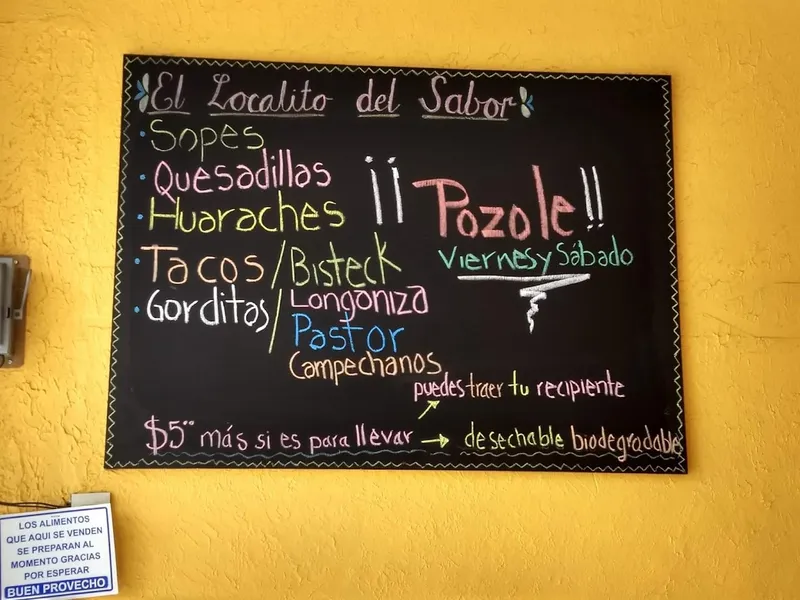 El Localito del Sabor
· Sopes
· Quesadillas
· Huaraches
· Tacos / Bisteck
· Gorditas / Longaniza
Pastor
Campechanos
¡¡ Pozole!!
Viernes y Sábado
puedes traer tu recipiente
$5°° más si es para llevar → desechable biodegradable
LOS ALIMENTOS
QUE AQUI SE VENDEN
SE PREPARAN AL
MOMENTO GRACIAS
POR ESPERAR
BUEN PROVECHO